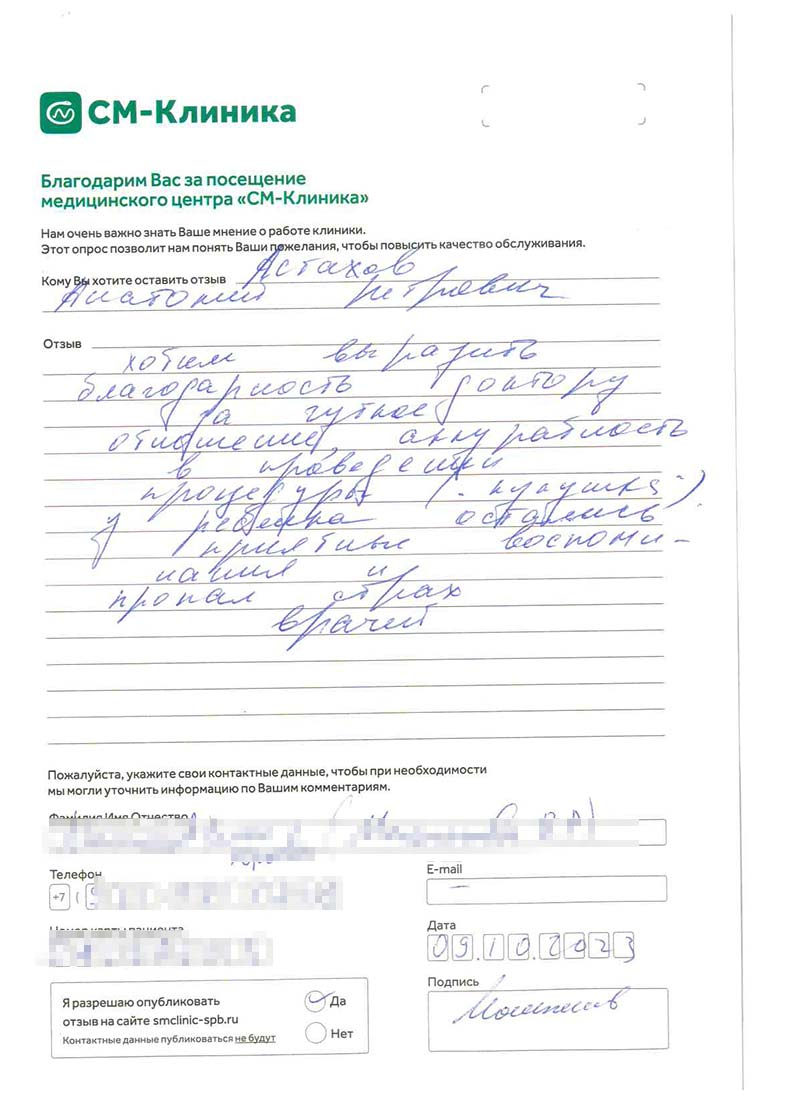 СМ-Клиника
Благодарим Вас за посещение
медицинского центра «СМ-Клиника»
Нам очень важно знать Ваше мнение о работе клиники.
Этот опрос позволит нам понять Ваши пожелания, чтобы повысить качество обслуживания.
Кому Вы хотите оставить отзыв Астахов
Анатолий Петрович
Отзыв
хотим выразить
благодарность доктору
за чуткое
отношение, аккуратность
в проведении
процедуры (. кукушка:).
У ребенка остались
приятные воспоми-
нания и
пропал страх
врачей
Пожалуйста, укажите свои контактные данные, чтобы при необходимости
мы могли уточнить информацию по Вашим комментариям.
Фамилия Имя Отчество
Телефон
+7 (
E-mail
–
Номер карты пациента
Дата
09.10.2023
Подпись
Я разрешаю опубликовать
отзыв на сайте smclinic-spb.ru
Контактные данные публиковаться не будут
Да
Нет